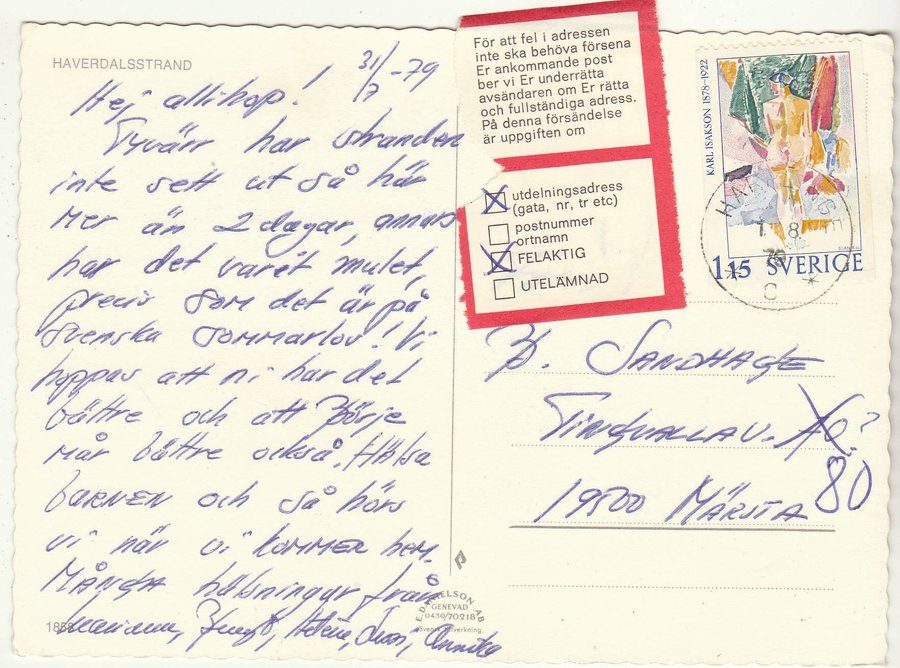 HAVERDALSSTRAND
31/7 -79
Hej allihop!
Tyvärr har stranden
inte sett ut så här
mer än 2 dagar, annars
har det varit mulet,
precis som det är på
svenska sommarlov! Vi
hoppas att ni har det
bättre och att Börje
mår bättre också. Hälsa
BARNEN och så hörs
vi när vi KOMMER hem.
MÅNGA hälsningar från
Mariann, Bengt, Helene, Annika
1858
För att fel i adressen
inte ska behöva försena
Er ankommande post
ber vi Er underrätta
avsändaren om Er rätta
och fullständiga adress.
På denna försändelse
är uppgiften om
utdelningsadress
(gata, nr, tr etc)
postnummer
ortnamn
FELAKTIG
UTELÄMNAD
KARL ISAKSON 1878–1922
115 SVERIGE
C
B. SANDHAGE
TINGVALLAV. 10?
80
19500 MÄRSTA
E. DANIELSON AB
GENEVAD
0430/70218
Svensk tillverkning.